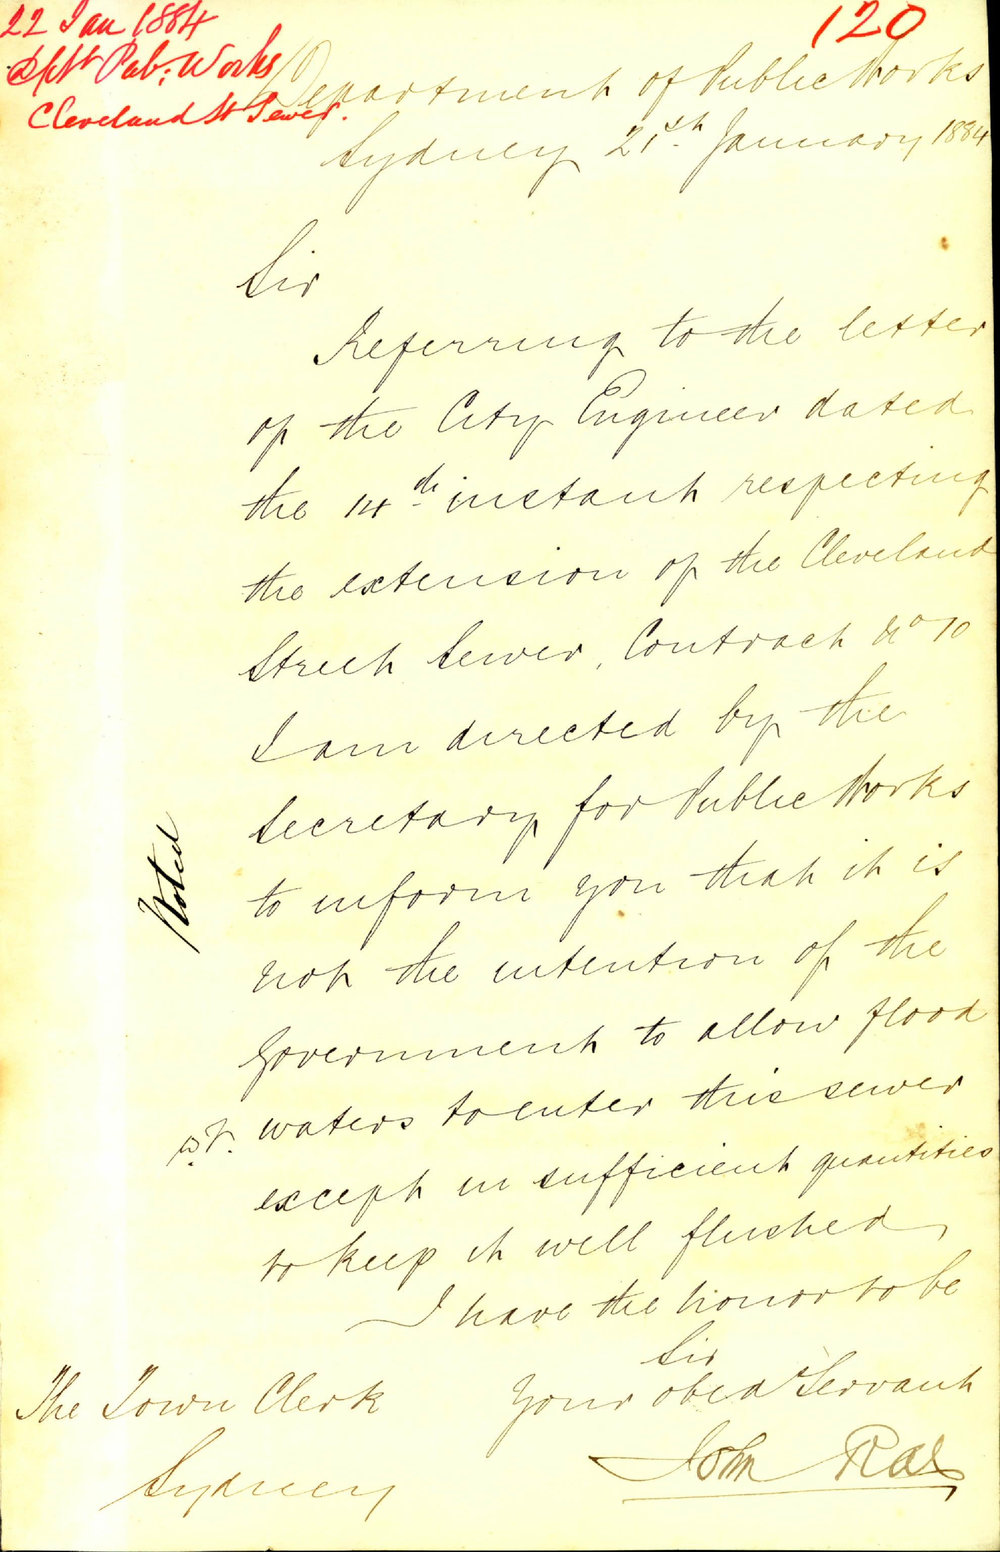 22 Jan 1884
Dept Pub: Works
Cleveland St Sewer.
120
Department of Public Works
Sydney 21st January 1884
Sir
Referring to the letter
of the City Engineer dated
the 14th instant respecting
the extension of the Cleveland
Street Sewer, Contract No 10
I am directed by the
Secretary for Public Works
to inform you that it is
not the intention of the
Government to allow flood
waters to enter this sewer
except in sufficient quantities
to keep it well flushed
I have the honor to be
Sir
Your obed Servant
John Rae
The Town Clerk
Sydney
Noted